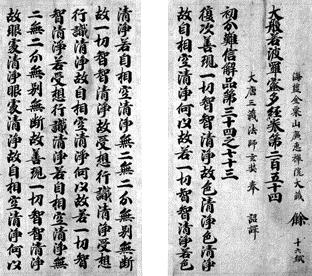 海鹽金粟山廣惠禪院大藏 餘 十六紙
大般若波羅蜜多經卷第二百五十四
大唐三藏法師玄奘奉 詔譯
初分難信解品第三十四之七十三
復次善現一切智智清淨故色清淨色清淨
故自相空清淨何以故若一切智智清淨若色
清淨若自相空清淨無二無二分無別無斷
故一切智智清淨故受想行識清淨受想
行識清淨故自相空清淨何以故若一切智
智清淨若受想行識清淨若自相空清淨無
二無二分無別無斷故善現一切智智清淨
故眼處清淨眼處清淨故自相空清淨何以